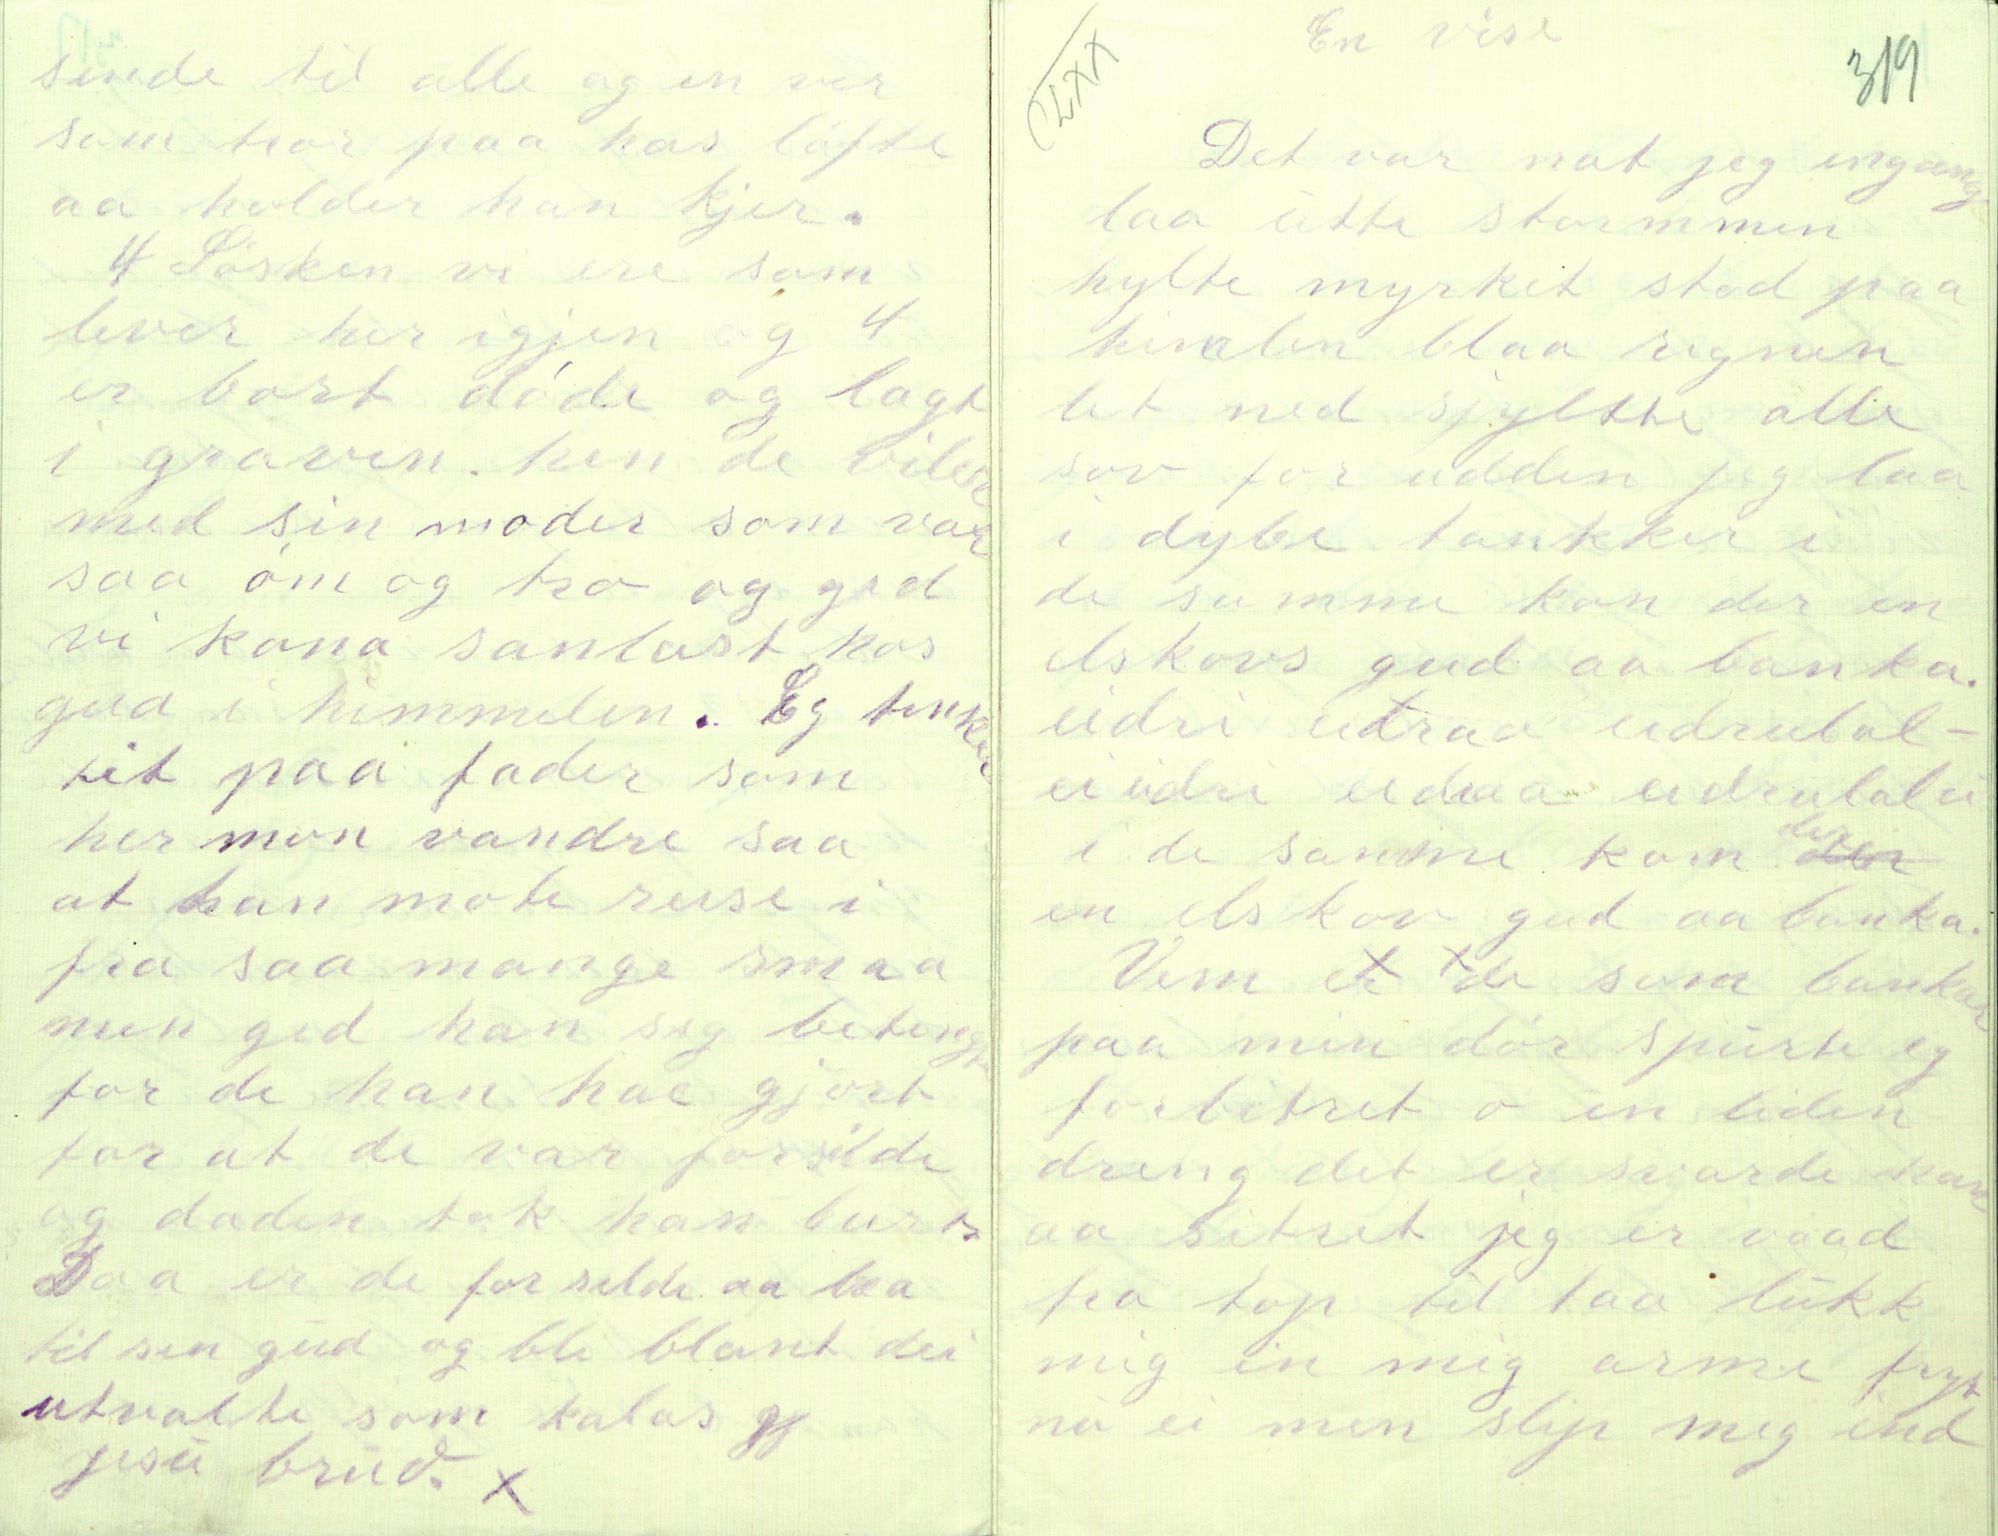 sende til alle og en ver
som tror paa hos løfte
aa holder han kjer.
4 Sösken vi ere som
lever her igjen og 4
er bort döde og lagt
i graven. hen de viler
med sin moder som var
saa óm og tro og god
vi kona sanlast hos
gud i himmelen. Eg tenker
tit paa fader som
her mon vandre saa
at han mote reise i
fra saa mange smaa
men gid han sig betengte
for de han hae gjort
for at de var for silde
og daden tok han burt
Daa er de for silde aa bea
til sin gud og bli blant dei
utvalte som kalas
jesü brüd. x
LXX
En vise
319
Det var nat jeg engang
laa ütte stormmen
hylte myrket stod paa
himlen blaa regnen
let ned sjyltte alle
sov for udden jeg laa
i dybe tankker i
de samme kon der en
elskovs gud aa banka.
eidri udraa udrubal-
ei üdri udraa udrulalei
i de samme kom der
en elskov gud aa banka.
Vem er x de som bankar
paa min dór spürte eg
forbitret o en liden
dreng det er svarde han
aa sitret jeg er vaad
fra top til taa lükk
mig in mig arme fryt
nü ei men slip meg ind